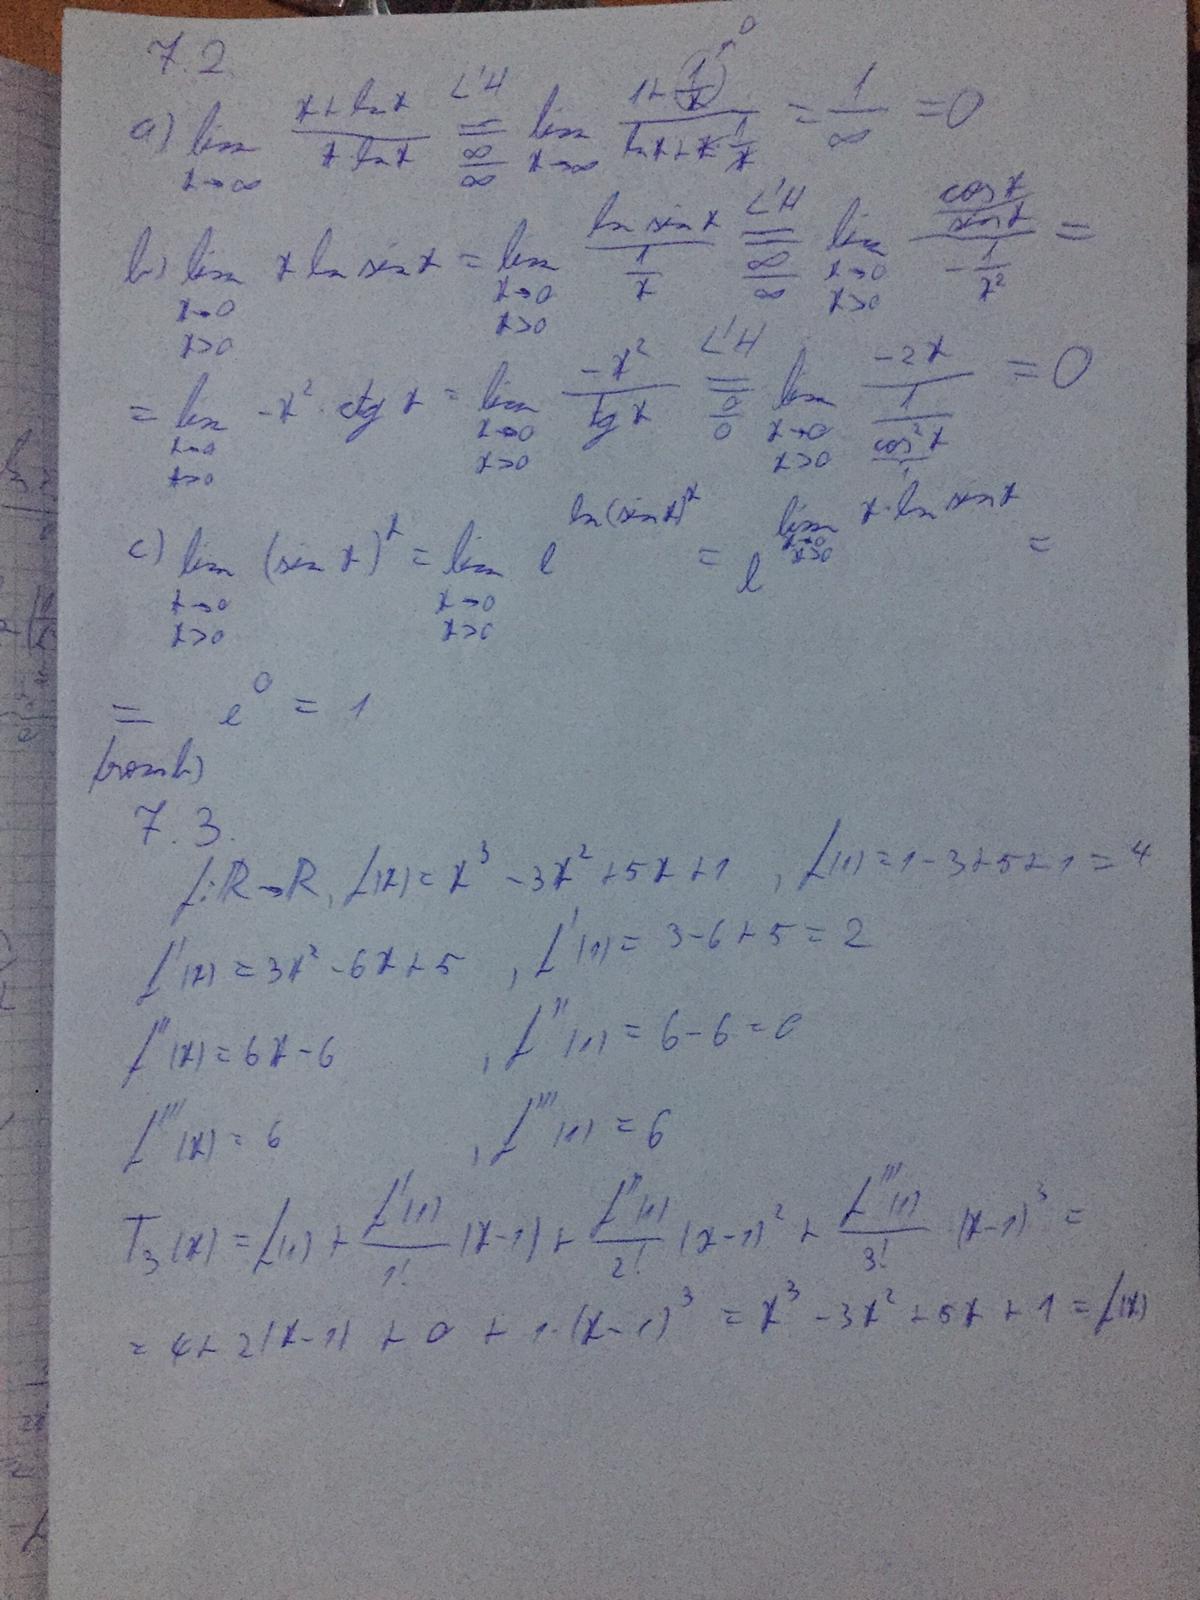 7.2.
a) lim x→∞ (x+ln x)/(x ln x) =^{L'H}_{∞/∞} lim x→∞ (1+(1/x)→0)/(ln x+x·1/x) = 1/∞ = 0
b) lim x→0 x>0 x ln sin x = lim x→0 x>0 (ln sin x)/(1/x) =^{L'H}_{∞/∞} lim x→0 x>0 (cos x/sin x)/(-1/x²) =
= lim x→0 x>0 -x²·ctg x = lim x→0 x>0 (-x²)/(tg x) =^{L'H}_{0/0} lim x→0 x>0 (-2x)/(1/cos²x) = 0
c) lim x→0 x>0 (sin x)^x = lim x→0 x>0 e^{ln(sin x)^x} = e^{lim x→0 x>0 x·ln sin x} =
= e^0 = 1
7.3.
f:ℝ→ℝ, f(x)=x³-3x²+5x+1 , f(1)=1-3+5+1=4
f'(x)=3x²-6x+5 , f'(1)=3-6+5=2
f''(x)=6x-6 , f''(1)=6-6=0
f'''(x)=6 , f'''(1)=6
T₃(x)=f(1)+f'(1)/1! (x-1)+f''(1)/2! (x-1)²+f'''(1)/3! (x-1)³=
=4+2(x-1)+0+1·(x-1)³=x³-3x²+5x+1=f(x)